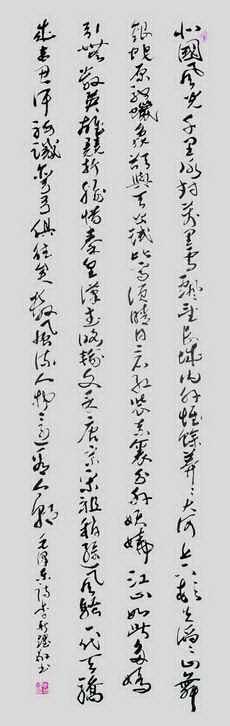 北國風光千里冰封萬里雪飄望長城內外惟餘莽〻大河上下頓失滔〻山舞
銀蛇原馳蠟象欲與天公試比高須晴日看紅裝素裹分外妖嬈江山如此多嬌
引無數英雄競折腰惜秦皇漢武略輸文采唐宗宋祖稍遜風騷一代天驕
成吉思汗祗識彎弓俱往矣數風流人物還看今朝
毛澤東詩 書